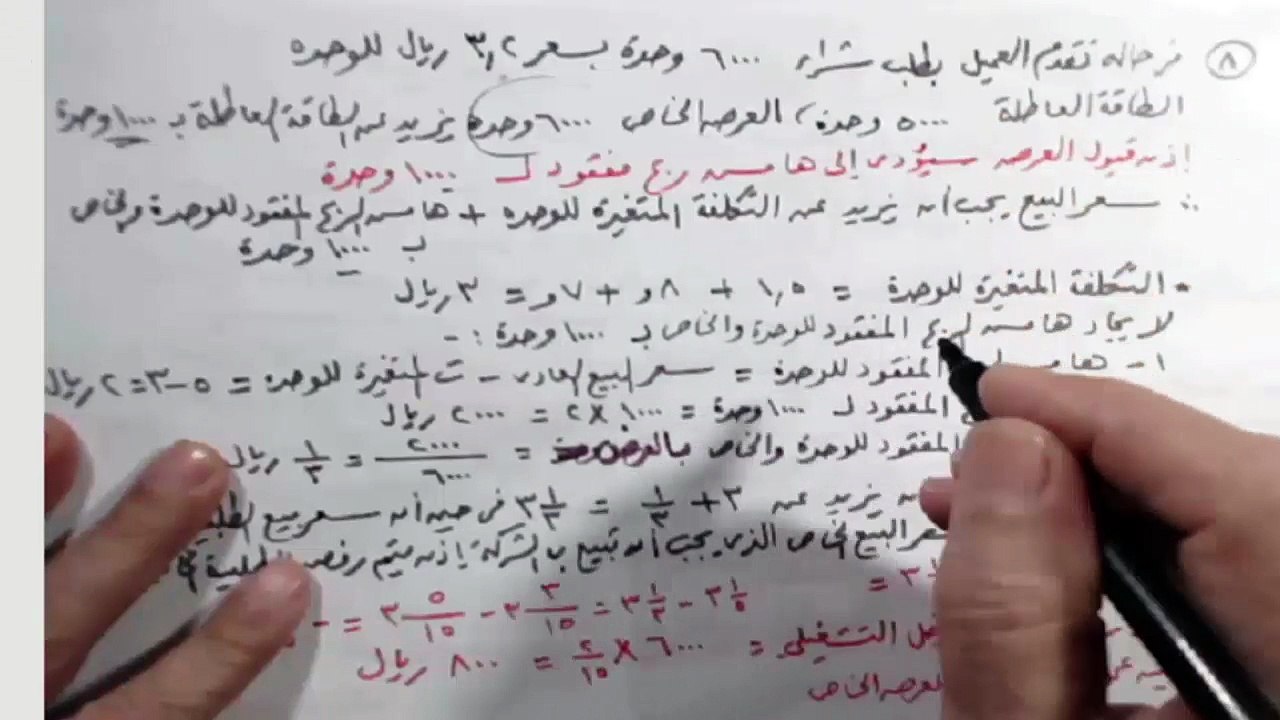 ٨ في حالة تقدم العميل بطلب شراء ٦٠٠٠ وحدة بسعر ٣,٢ ريال للوحده
الطاقة العاطلة ٥٠٠٠ وحدة، العرض الخاص ٦٠٠٠ وحدة يزيد عن الطاقة العاطلة بـ ١٠٠٠ وحدة
إذن قبول العرض سيؤدى إلى هامش ربح مفقود لـ ١٠٠٠ وحدة
∴ سعر البيع يجب أن يزيد عن التكلفة المتغيرة للوحده + هامش الربح المفقود للوحدة والخاص
بـ ١٠٠٠ وحدة
• التكلفة المتغيرة للوحدة = ١,٥ + ٨,و + ٧,و = ٣ ريال
لا يجاد هامش الربح المفقود للوحدة والخاص بـ ١٠٠٠ وحدة :-
١- هامش المفقود للوحدة = سعر البيع العادى - ت المتغيرة للوحدة = ٥-٣ = ٢ ريال
المفقود لـ ١٠٠٠ وحدة = ١٠٠٠ × ٢ = ٢٠٠٠ ريال
المفقود للوحدة والخاص بالعرض = ٢٠٠٠/٦٠٠٠ = ١/٣ ريال
يزيد عن ٣ + ١/٣ = ٣ ١/٣ فى حين أن سعر بيع
سعر البيع الخاص الذى يجب أن تبيع به الشركة إذن يتم رفض
= ٣ ١/٥ - ٣ ١/٣ = ٣ ٣/١٥ - ٣ ٥/١٥ = -
التشغيلى = ٦٠٠٠ × ٢/١٥ = ٨٠٠ ريال
العرض الخاص